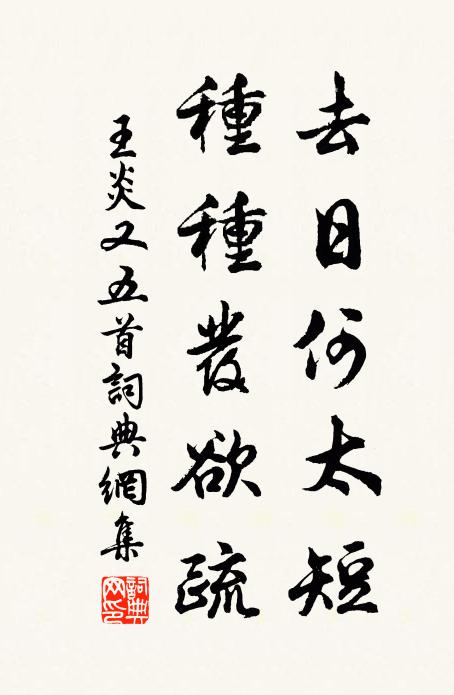 去日何太短
種種發欲疏
王炎又五首詞典網集
詞典網印